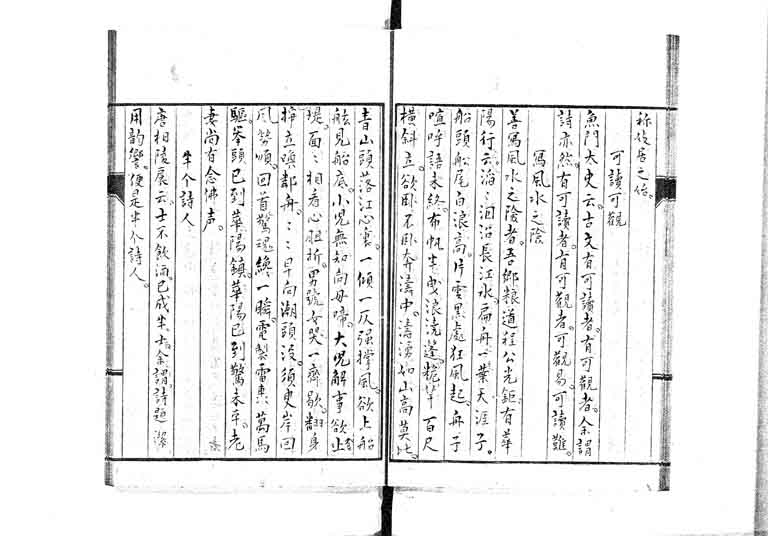 称于居之佑。
可讀可觀
魚門太史云。古文有可讀者。有可觀者。余謂
詩亦然。有可讀者。有可觀者。可觀易。可讀難。
寫風水之險
善寫風水之險者。吾鄉粮道程公光鉅。有華
陽行云。滔滔汩汩長江水。扁舟一葉天涯子。
船頭船尾白浪高。片雲黑處狂風起。舟子
喧呼語未終。布帆半曳浪洗蓬。桅竿百尺
橫斜立。欲卧不卧奔濤中。濤湧如山高莫比。
青山頭落江心裏。一傾一仄强撑風。欲上船
舷見船底。小児無知向母啼。大児解事欲上
堤。面〻相看心胆折。男號女哭一齊歇。翻身
擔立喚鄰舟。〻〻早向潮頭没。須臾岸回
風勢順。回首驚魂纔一瞬。電掣雷轟萬馬
驅。峯頭已到華陽鎮。華陽已到驚未平。老
妻尚有念佛声。
半个詩人
唐相陵展云。士不飲酒。已成半士。余謂。詩題潔
用韵響。便是半个詩人。